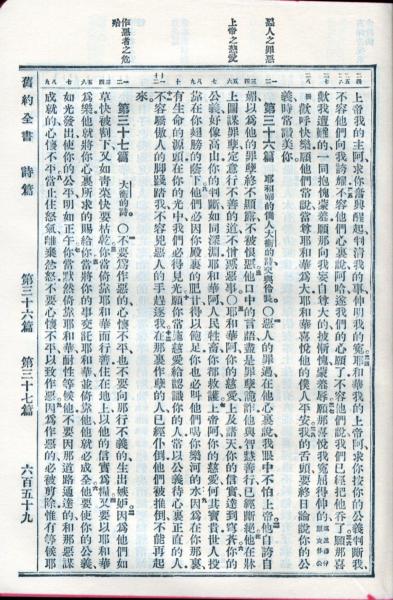 上帝我的主阿求你奮興醒起判淸我的事伸明我的冤耶和華我的上帝阿求你按你的公義判斷我、
不容他們向我誇耀不容他們心裏說阿哈遂我們的心願了不容他們說我們已經把他吞了願那喜
歡我遭難的一同抱愧蒙羞願那向我妄自尊大的披慚愧蒙羞辱願那喜我冤屈得伸的、
歡呼快樂願他們常說當尊耶和華爲大耶和華喜悅他的僕人平安我的舌頭要終日論說你的公
義時常讚美你
惡人之罪惡
第三十六篇 耶和華的僕人大衛的詩交與伶長 ○惡人的罪過在他心裏說我眼中不怕上帝他自誇自
媚以爲他的罪孽終不顯露不被恨惡他口中的言語盡是罪孽詭詐他與智慧善行已經斷絕他在牀
上帝之慈愛
上圖謀罪孽定意行不善的道不憎惡惡事○耶和華阿你的慈愛上及諸天你的信實達到穹蒼你的
公義好像高山你的判斷如同深淵耶和華阿人民牲畜你都救護上帝阿你的慈愛何其寶貴世人投
靠在你翅膀的蔭下他們必因你殿裏的肥甘得以飽足你也必叫他們喝你樂河的水因爲在你那裏、
有生命的源頭在你的光中我們必得見光願你常施慈愛給認識你的人常以公義待心裏正直的人
不容驕傲人的腳踐踏我不容兇惡人的手趕逐我在那裏作孽的人已經仆倒他們被推倒不能再起
來。
作惡者之危殆
第三十七篇 大衛的詩 ○不要爲作惡的心懷不平也不要向那行不義的生出嫉妒因爲他們如
草快被割下又如靑菜快要枯乾你當倚靠耶和華而行善住在地上以他的信實爲糧又要以耶和華
爲樂他就將你心裏所求的賜給你當將你的事交託耶和華並倚靠他他就必成全他要使你的公義、
如光發出使你的公平明如正午你當默然倚靠耶和華耐性等候他不要因那道路通達的和那惡謀
成就的心懷不平當止住怒氣離棄忿怒不要心懷不平以致作惡因爲作惡的必被剪除惟有等候耶
舊約全書 詩篇 第三十六篇 第三十七篇 六百五十九